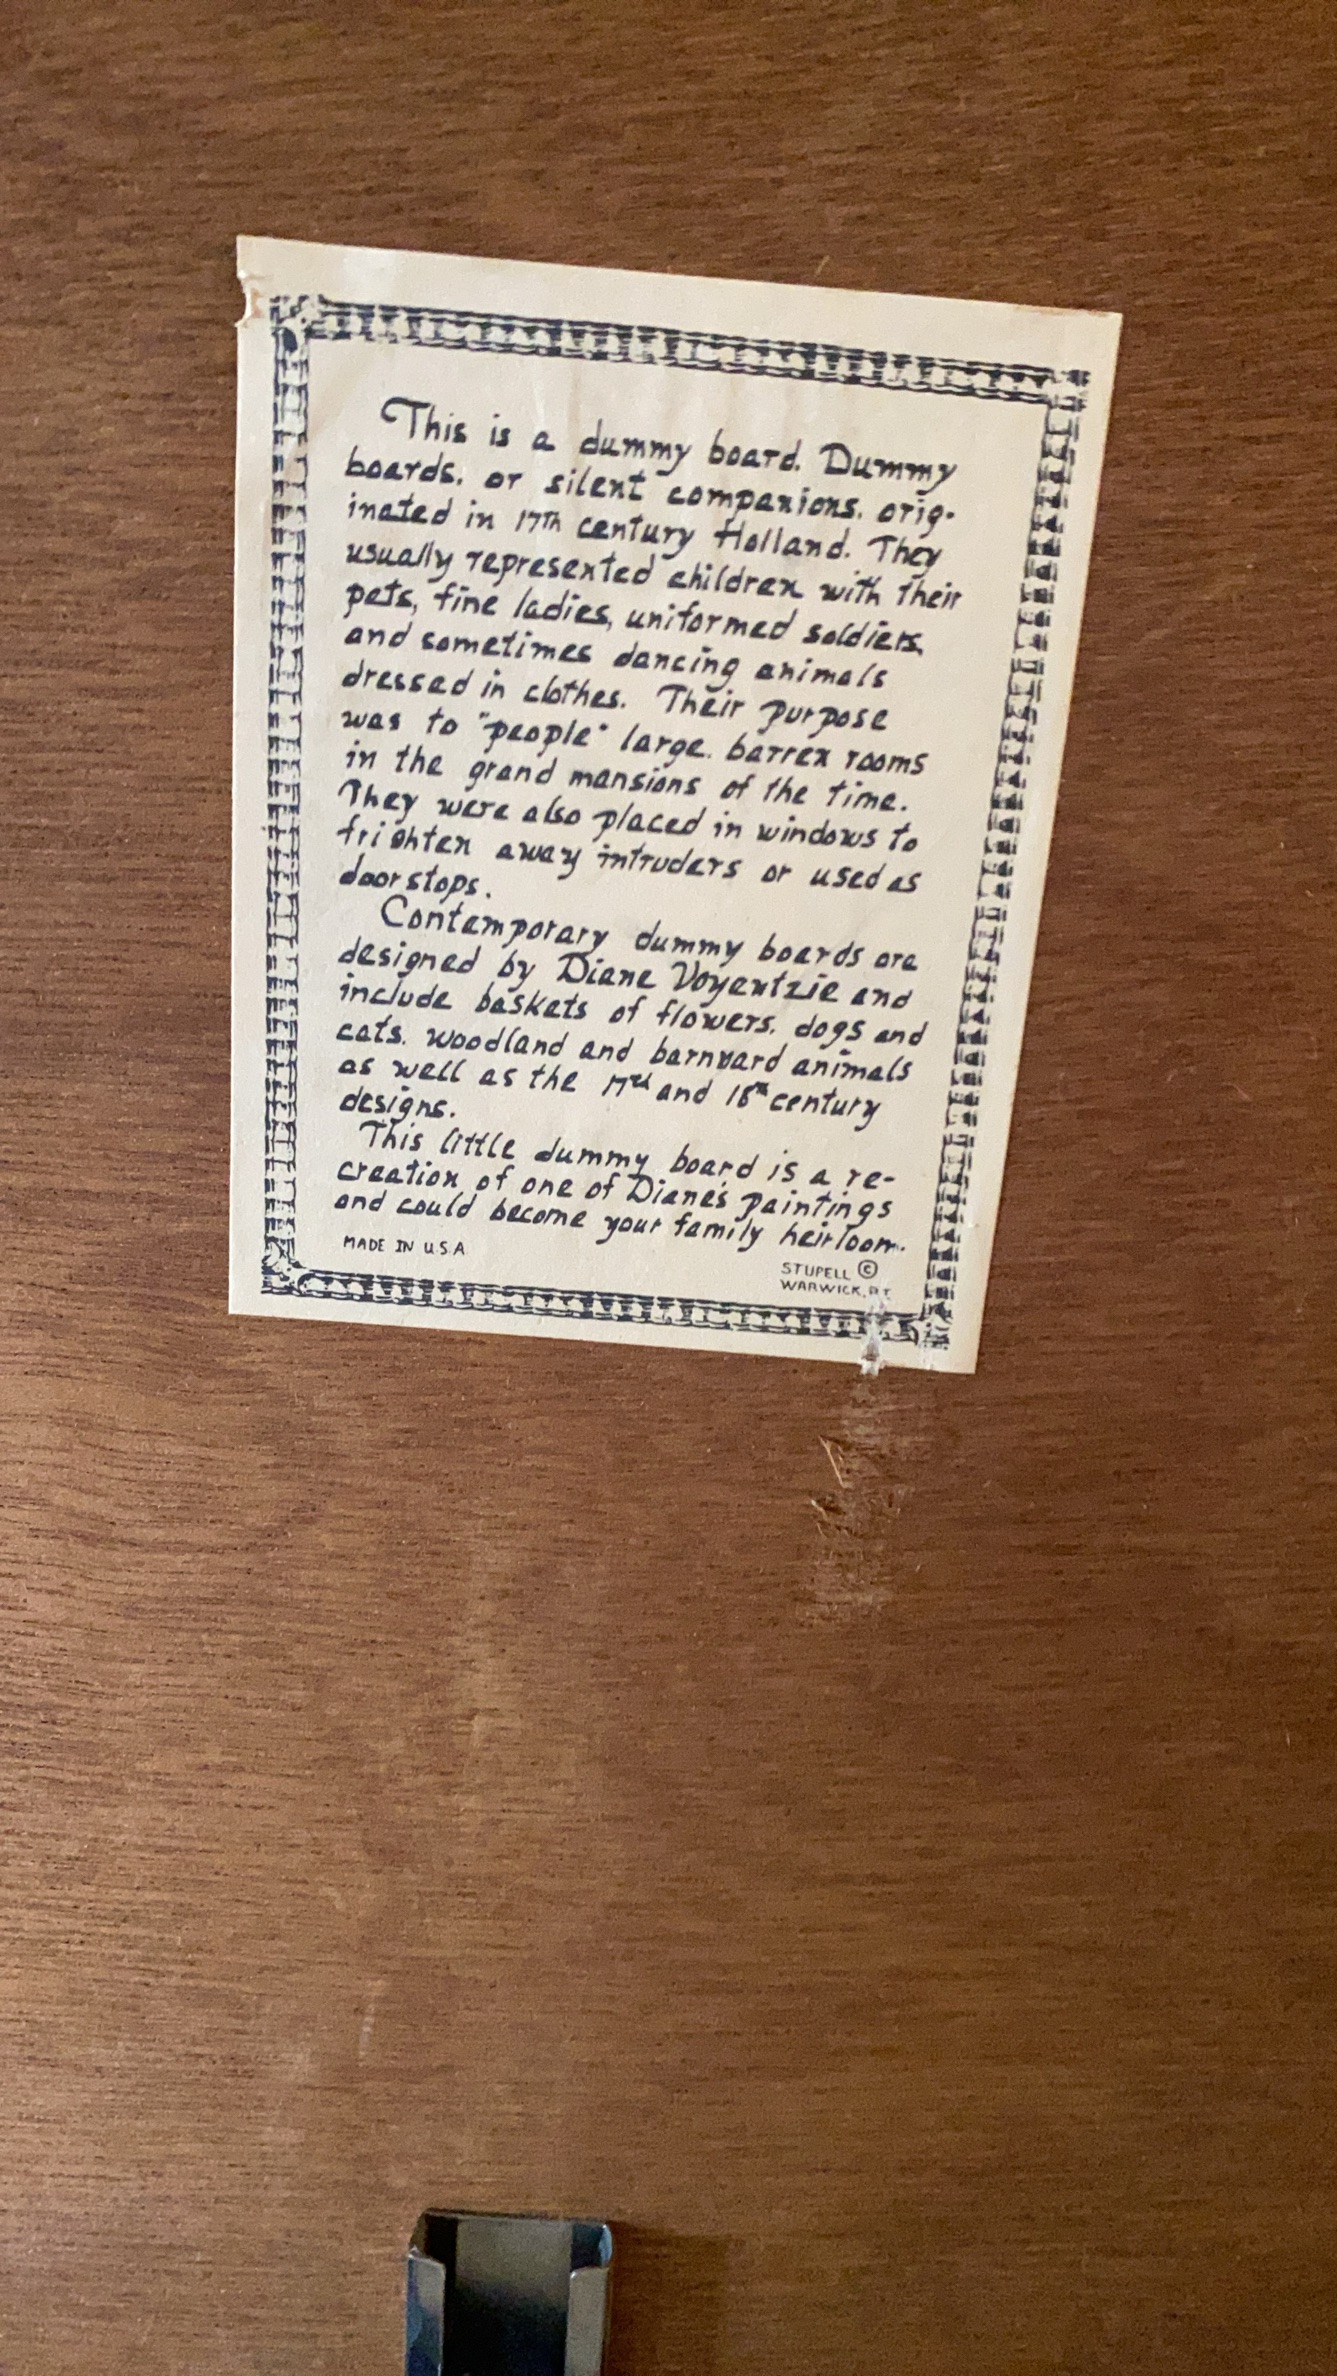 This is a dummy board. Dummy
boards, or silent companions, orig-
inated in 17TH century Holland. They
usually represented children with their
pets, fine ladies, uniformed soldiers,
and sometimes dancing animals
dressed in clothes. Their purpose
was to "people" large, barren rooms
in the grand mansions of the time.
They were also placed in windows to
frighten away intruders or used as
doorstops.
Contemporary dummy boards are
designed by Diane Voyentzie and
include baskets of flowers, dogs and
cats, woodland and barnyard animals
as well as the 17th and 18th century
designs.
This little dummy board is a re-
creation of one of Diane's paintings
and could become your family heirloom.
MADE IN U.S.A
STUPELL ©
WARWICK, R.I.